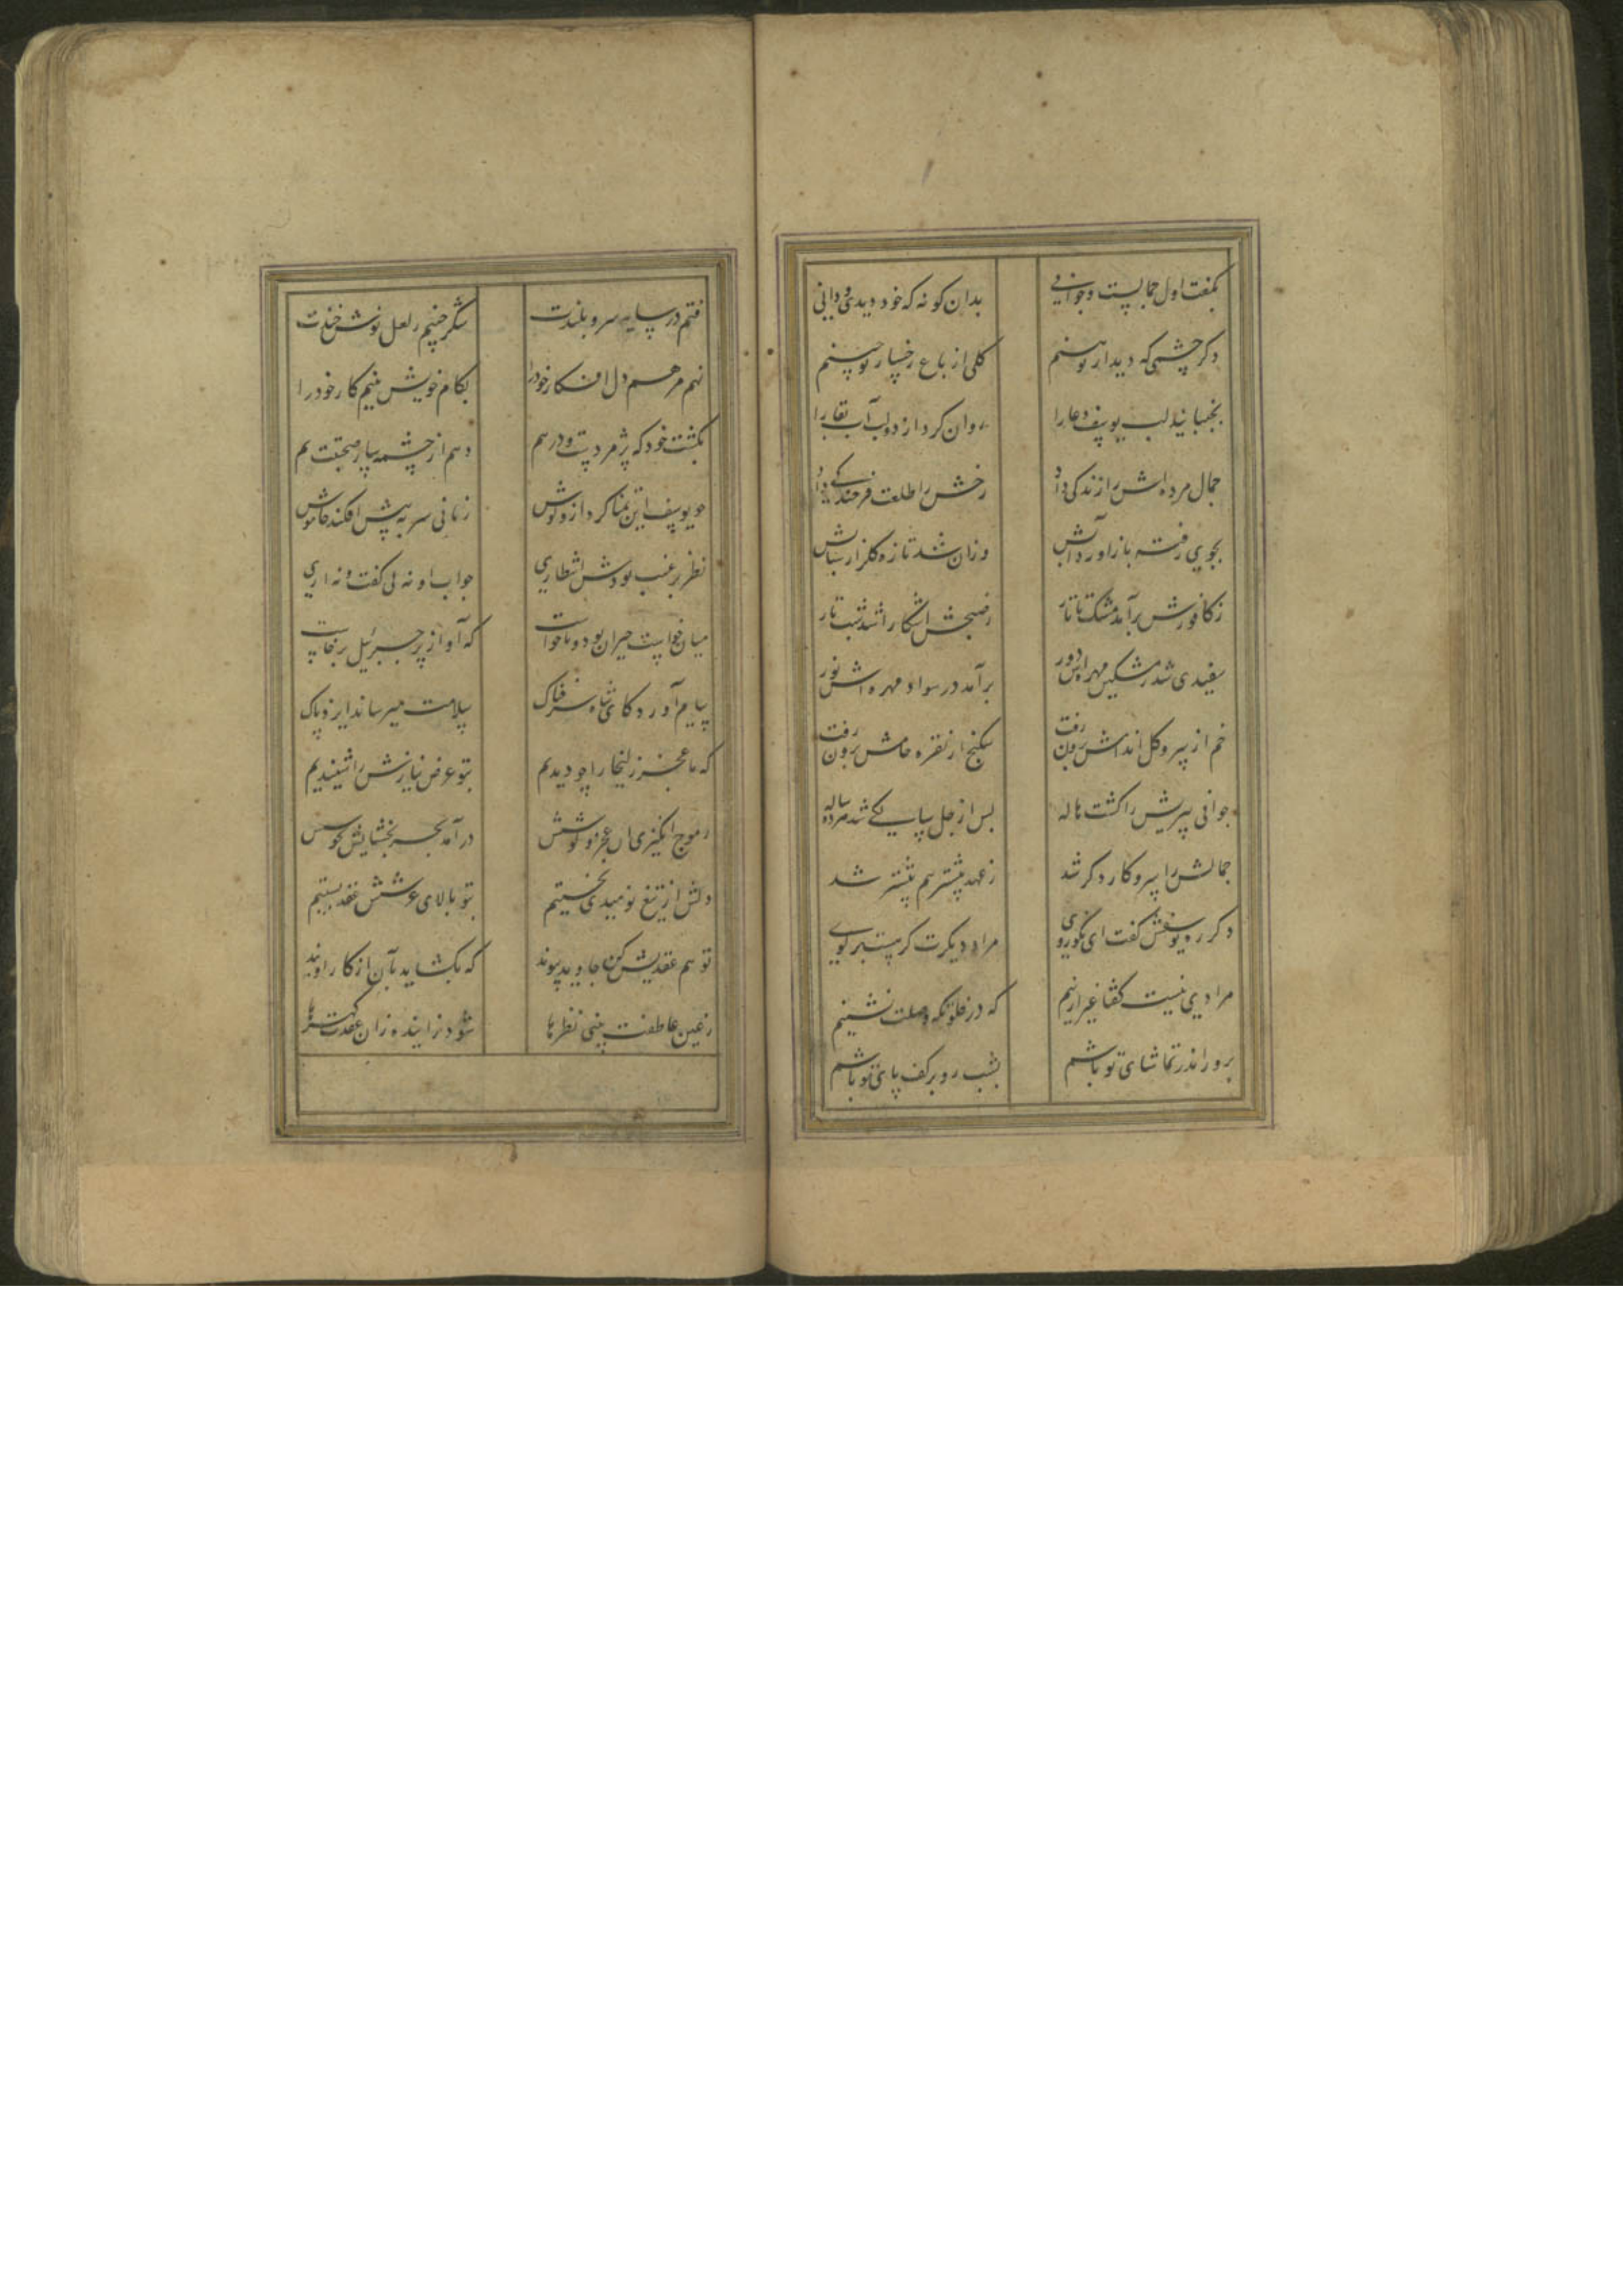 بگفت اول جمالست و جوانی بدان گونه که خود دیدی و دانی
دگر چشمی که دیدار تو بینم گلی از باغ رخسار تو چینم
بجنبانید لب یوسف دعا را روان کرد از دو لب آب بقا را
جمال مرده‌اش را زندگی داد رخش را طلعت فرخندگی داد
بجوی رفته باز آورد آبش وزان شد تازه گلزار شبابش
ز کافورش برآمد مشک تاتار ز صبحش آشکارا شد شب تار
سفیدی شد ز مشکین مهره‌اش دور برآمد در سواد مهره‌اش نور
خم از سرو گل اندامش برون رفت شکنج از نقره خامش برون رفت
جوانی پیریش را گشت هاله پس از چل سالگی شد هژده ساله
جمالش را سر و کار دگر شد ز عهد پیشتر هم پیشتر شد
دگر ره یوسفش گفت ای نکوروی مراد دیگرت گر هست برگوی
مرادی نیست گفتا غیر ازینم که در خلوتگه وصلت نشینم
بروز اندر تماشای تو باشم بشب رو بر کف پای تو باشم
فتم در سایه سرو بلندت شکر چینم ز لعل نوشخندت
نهم مرهم دل افکار خود را بکام خویش بینم کار خود را
بکشت خود که پژمردست و درهم دهم از چشمه سار صحبتت نم
چو یوسف این تمنا کرد ازو گوش زمانی سر به پیش افکند خاموش
نظر بر غیب بودش انتظاری جواب او نه نی گفت و نه آری
میان خواست حیران بود و ناخواست که آواز پر جبرئیل برخاست
پیام آورد کای شاه شرفناک سلامت میرساند ایزد پاک
که ما عجز زلیخا را چو دیدیم بتو عرض نیازش را شنیدیم
ز موج انگیزی آن عجز و کوشش درآمد بحر بخشایش بجوشش
دلش از تیغ نومیدی نخستیم بتو بالای عرشش عقد بستیم
تو هم عقدیش کن جاوید پیوند که بگشاید بآن از کار او بند
ز عین عاطفت بینی نظرها شود زاینده زان عقدت گهرها